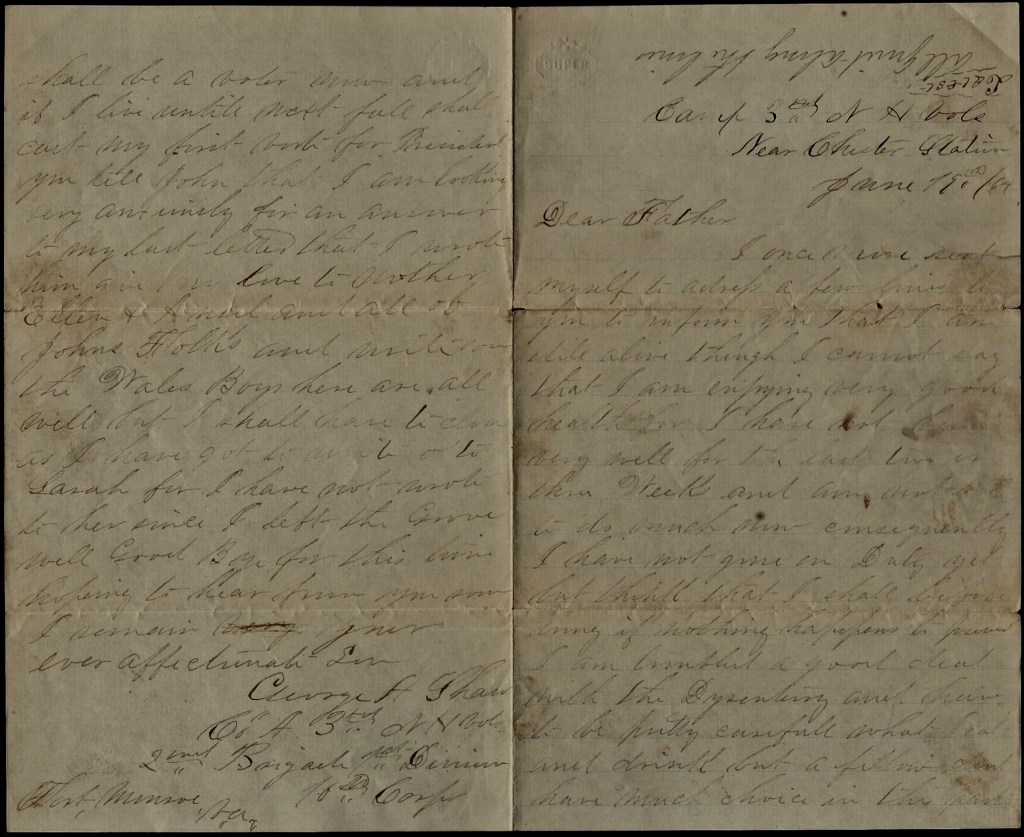 Latest,
all quiet along the line
Camp 3rd N H Vols
Near Chester Station
June 19th /64
Dear Father
I once more seat
myself to adress a few lines to
you to inform you that I am
still alive though I cannot say
that I am enjoying very good
health for I have not been
very well for the last two or
three Weeks and am not able
to do much now consequently
I have not gone on Duty yet
but think that I shall before
long if nothing happens to prevent
I am troubled a good deal
with the Dysentery and have
to be pretty carefull what I eat
and drink but a fellow dont
have much choice in this part
shall be a voter now and
if I live untile next fall shall
cast my first vote for President
you tell John that I am looking
very anxiously for an answer
to my last letter that I wrote
him give my love to Mother
Ellen & and all of
Johns Folks and write soon
the Wales Boys here are all
well but I shall have to close
as I have got to write to
Sarah for I have not wrote
to her since I left the Grove
well Good Bye for this time
hoping to hear from you soon
I remain very your
ever affectunate Son
George H Shaw
Co A. 3rd N H Vols
2nd Brigade 1st Division
10th Corps
Fort Munroe
Va
SUPER